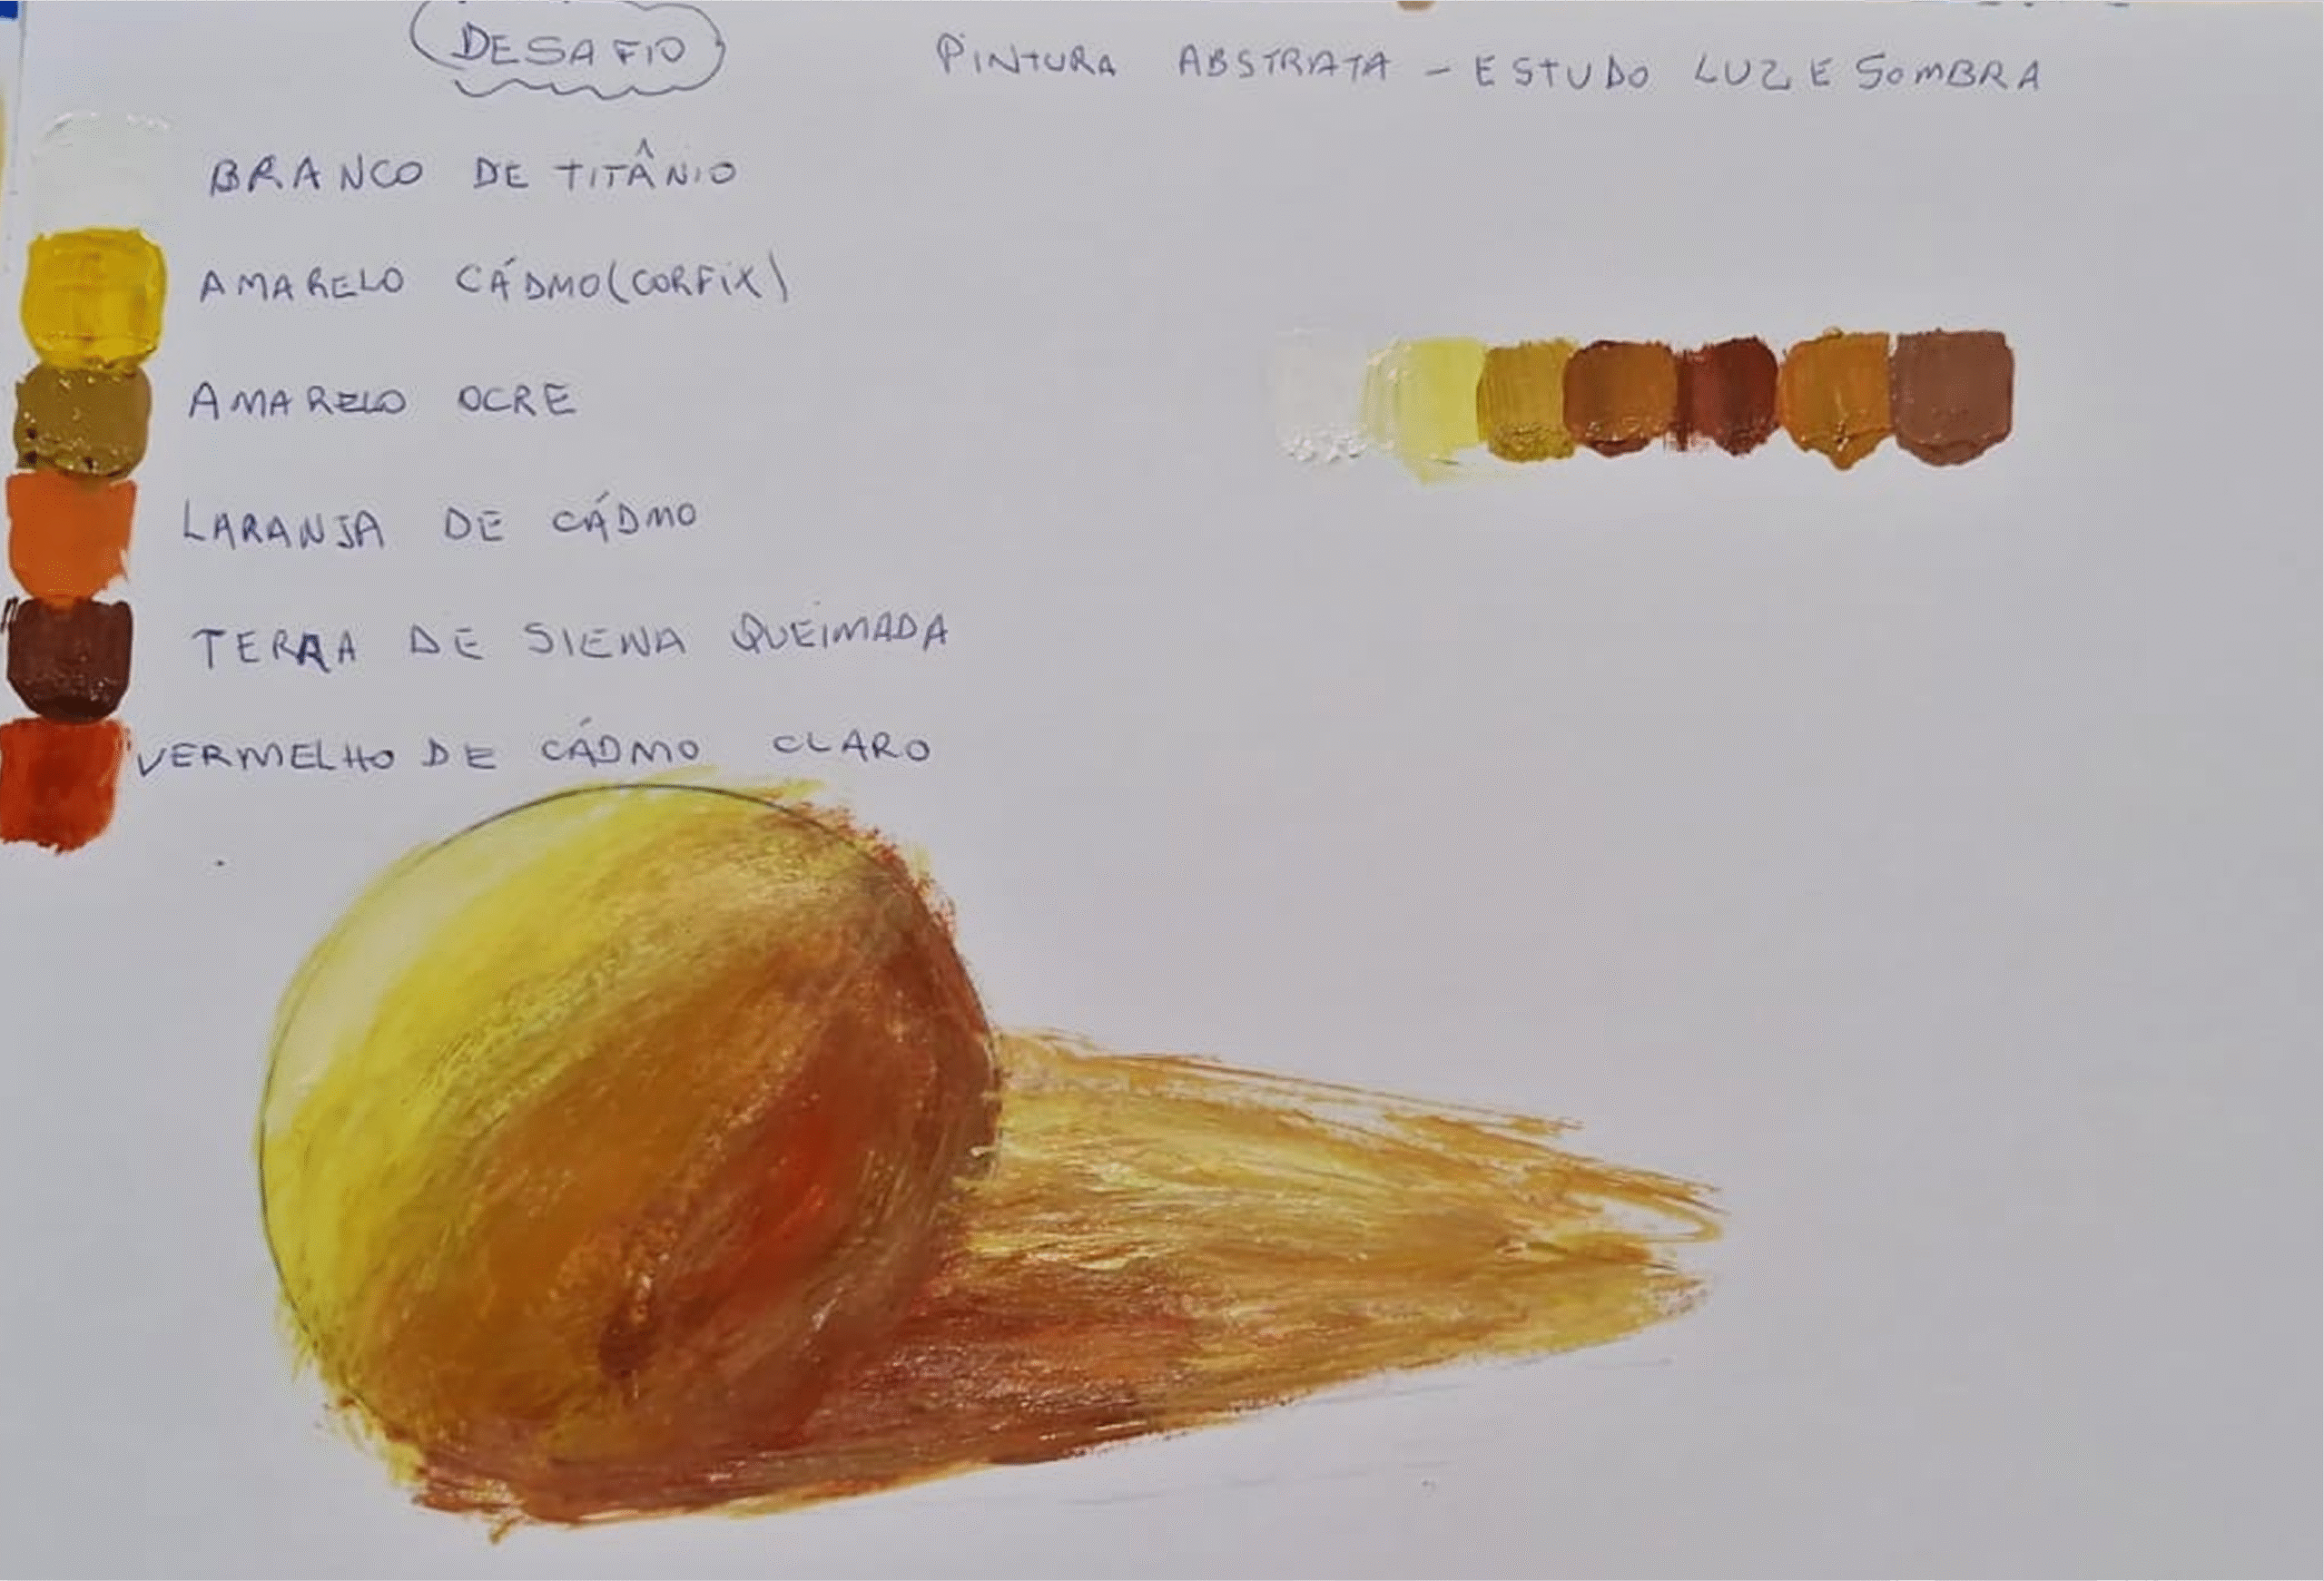 DESAFIO
PINTURA ABSTRATA - ESTUDO LUZ E SOMBRA
BRANCO DE TITÂNIO
AMARELO CÁDMO (CORFIX)
AMARELO OCRE
LARANJA DE CÁDMO
TERRA DE SIENA QUEIMADA
VERMELHO DE CÁDMO CLARO